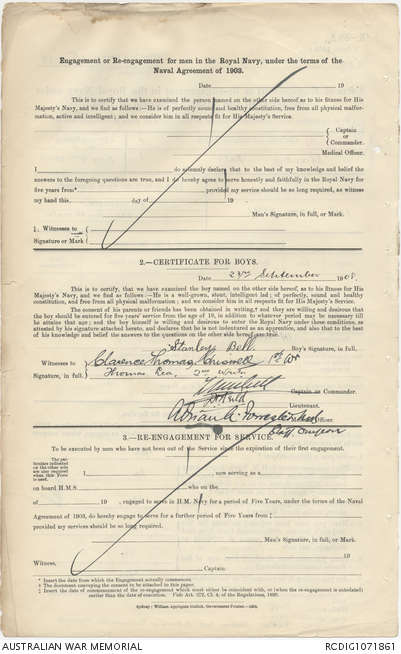 Engagement or Re-engagement for men in the Royal Navy, under the terms of the
Naval Agreement of 1903.
Date 19
This is to certify that we have examined the person named on the other side hereof as to his fitness for His
Majesty's Navy, and we find as follows:—He is of perfectly sound and healthy constitution, free from all physical malfor-
mation, active and intelligent; and we consider him in all respects fit for His Majesty's Service.
Captain
or
Commander.
Medical Officer.
I do solemnly declare that to the best of my knowledge and belief the
answers to the foregoing questions are true, and I do hereby agree to serve honestly and faithfully in the Royal Navy for
five years from* provided my service should be so long required, as witness
my hand this day of 19 .
Man's Signature, in full, or Mark.
Witnesses to
Signature or Mark
2.—CERTIFICATE FOR BOYS.
Date 23rd September 1908
This is to certify, that we have examined the boy named on the other side hereof as to his fitness for His
Majesty's Navy, and we find as follows:—He is a well-grown, stout, intelligent lad; of perfectly, sound and healthy
constitution, and free from all physical malformation; and we consider him in all respects fit for His Majesty's Service.
The consent of his parents or friends has been obtained in writing,† and they are willing and desirous that
the boy should be entered for five years' service from the age of 18, in addition to whatever period may be necessary till
he attains that age; and the boy himself is willing and desirous to enter the Royal Navy under those conditions, as
attested by his signature attached hereto, and declares that he is not indentured as an apprentice, and also that to the best
of his knowledge and belief the answers to the questions on the other side hereof are true.
Stanley Bell Boy's Signature, in full.
Witnesses to Clarence Thomas 1st Wr
Signature, in full. Thomas Rea, 2nd Writer
Captain or Commander.
Lieutenant.
Adrian A. Forrester
Staff Surgeon
3.—RE-ENGAGEMENT FOR SERVICE.
To be executed by men who have not been out of the Service since the expiration of their first engagement.
The particulars indicated on the other side are also required when this Form is used.
I , now serving as a
on board H.M.S. who on the
of 19 , engaged to serve in H.M. Navy for a period of Five Years, under the terms of the Naval
Agreement of 1903, do hereby engage to serve for a further period of Five Years from‡
provided my services should be so long required.
Man's Signature, in full, or Mark.
19
Witness,
Captain.
* Insert the date from which the Engagement actually commences.
† The document conveying the consent to be attached to this paper.
‡ Insert the date of commencement of the re-engagement which must either be coincident with, or (when the re-engagement is antedated)
earlier than the date of execution. Vide Art. 372, Cl. 4, of the Regulations, 1899.
Sydney: William Applegate Gullick, Government Printer.
AUSTRALIAN WAR MEMORIAL RCDIG1071861